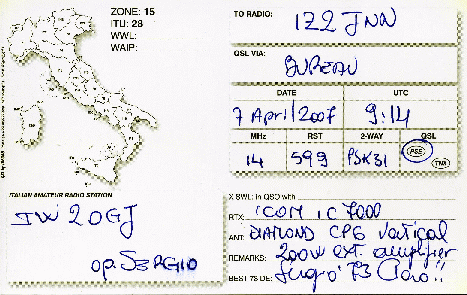 ZONE: 15
ITU: 28
WWL:
WAIP:
TO RADIO: IZ2 JNN
QSL VIA: BUREAU
DATE UTC
7 April 2007 9:14
MHz RST 2-WAY QSL
14 599 PSK31 PSE TNX
ITALIAN AMATEUR RADIO STATION
IW 2OGJ
op. SERGIO
X SWL: in QSO with
RTX: ICOM IC7000
ANT: DIAMOND CP6 Vertical
REMARKS: 200W ext. amplifier
BEST 73 DE: Sergio 73 Ciao!!